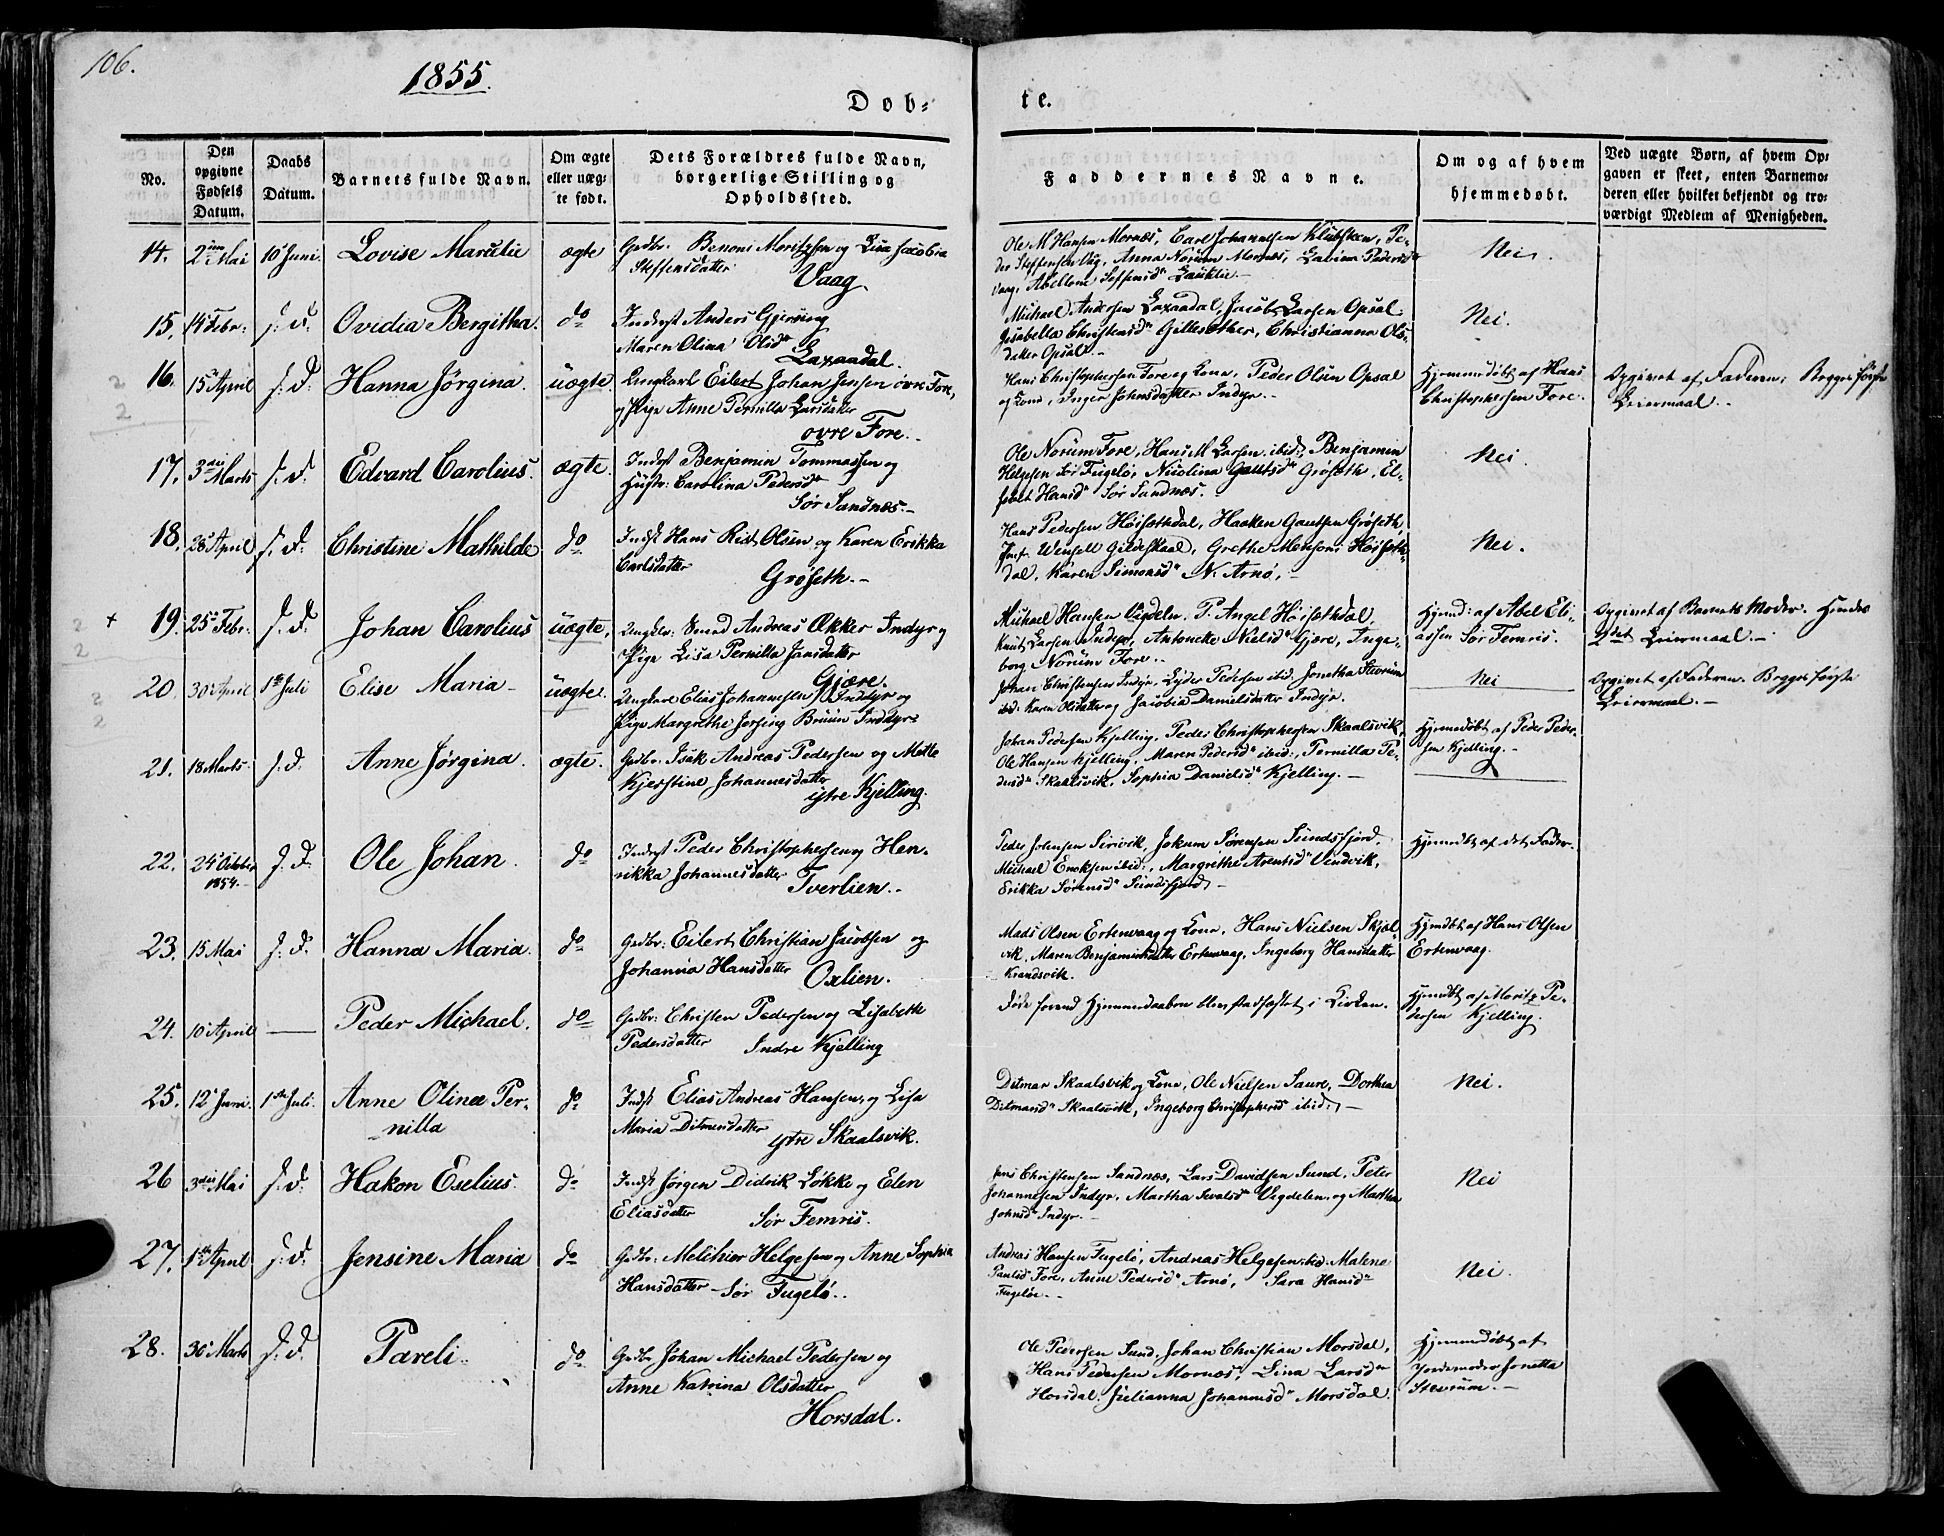 106.
1855.
Døb-
te.
No.
Den opgivne Fødsels Datum.
Daabs Datum.
Barnets fulde Navn.
Om ægte eller uægte født.
Dets Forældres fulde Navn, borgerlige Stilling og Opholdssted.
Faddernes Navne.
Om og af hvem hjemmedøbt.
Ved uægte Børn, af hvem Opgaven er skeet, enten Barnemoderen eller hvilket bekjendt og troværdigt Medlem af Menigheden.
14. 2den Mai 10 Juni. Lovise Marelie ægte
Gdbr. Benoni Moritzsen og Lisa Jacobia
Steffensdatter
Vaag.
Ole M Hansen Mornæs, Carl Johannesen
der Steffensen Vaag, Anna Norum Mornæs, Lavina Pedersd
Vaag, Abellone
Nei.
15. 14 Febr. s. D. Ovidia Bergitha. do
Indrst Anders
Maren Olina Olsd
Laxaadal.
Michael Andersen Laxaadal, Jacob Larsen Opsal.
Isabella Christensd Christianna Ols-
datter Opsal.
Nei.
16. 15 April s. D. Hanna Jørgina. uægte.
Ungkarl Eilert Johan Jensen øvre Fore,
og Pige Anne Pernilla Larsdatter
øvre Fore.
Hans Christophersen Fore og Kone, Peder Olsen Opsal
og Kone, Inger Johnsdatter Indyr.
Hjemmedøbt af Hans
Christophersen Fore.
Opgivet af Faderen; Begges første
Leiermaal.
17. 3die Marts s. D. Edvard Carolius. ægte.
Indrst Benjamin Tommassen og
Hustr: Carolina Pedersd
Sør Sandnæs.
Ole Norum Fore, Hans M Larsen ibid:, Benjamin
Helgesen Sør Fugelø, Nicolina Gautsd Grøseth, El-
Hansd Sør Sandnæs.
Nei.
18. 28 April s. D. Christine Mathilde do
Indst Hans Olsen og Karen Erikka
Carlsdatter
Grøseth.
Hans Pedersen Høisethdal, Haaken Gautsen Grøseth,
Gildeskaal, Grethe Monsen, Høiseth-
dal, Karen Simonsd N. Arnø.
Nei.
19. 25 Febr. s. D. Johan Carolius uægte.
Ungkr: Smed Andreas Økker Indyr og
Pige Lisa Pernilla Jansdatter
Gjære.
Michael Hansen Vigdeln. P. Angel Høisethdal,
Knut Larsen Indyr, Antonette Nielsd Gjære, Inge-
borg Norum Fore.
Hjemd: af Abel Eli-
assen Sør Femris.
Opgivet af Barnets Moder. Hendes
2det Leiermaal.
20. 30 April 1ste Juli Elise Maria uægte.
Ungkarl Elias Johannesen Indyr og
Pige Margrethe Bruun Indyr.
Johan Christensen Indyr, Lyder Pedersen ibid. Jonetha Sterum
ibid: Karen Olsdatter og Jacobia Danielsdatter Indyr.
Nei
Opgivet af Faderen. Begges første
Leiermaal.
21. 18 Marts. s. D. Anne Jørgina. ægte.
Gdbr. Isak Andreas Pedersen og Mette
Kjerstine Johannesdatter
ystre Kjelling.
Johan Pedersen Kjelling, Peder Christophersen Skaalsvik,
Ole Hansen Kjelling, Maren Pedersd ibid:, Pernilla Pe-
dersd Skaalsvik, Sophia Danielsd Kjelling.
Hjemmedøbt af Peder Peder-
sen Kjelling.
22. 24 October 1854. s. D. Ole Johan. do
Indrst Peder Christophersen og Hen-
rikka Johannesdatter
Tverlien.
Peder Johnsen Jokum Sørensen Sundsfjord.
Michael Enoksen ibid:, Margrethe Arentsd Vindvik,
Erikka Sørensd Sundsfjord
Hjemdbt af det Fader.
23. 15 Mai s. D. Hanna Maria. do
Gdbr: Eilert Christian Jacobsen og
Johanna Hansdatter
Oxlien.
Mads Olsen Ertenvaag og Kone, Hans Nielsen Skjæl-
vik, Maren Benjaminsdatter Ertenvaag, Ingeborg Hansdatter
Krandsvik.
Hjemdbt af Hans Olsen
Ertenvaag.
24. 10 April Peder Michael. do
Gdbr: Christen Pedersen og Lisabeth
Pedersdatter
Indre Kjelling
Døde forend Hjemmedaaben blev stadfæstet i Kirken.
Hjemdbt af Moritz Pe-
dersen Kjelling.
25. 12 Juni. 1ste Juli. Anne Olina Per-
nilla
do
Indst Elias Andreas Hansen og Lisa
Maria Ditmersdatter
ystre Skaalsvik.
Ditmar Skaalsvik og Kone, Ole Nielsen Saure, Dorthea
Ditmarsd Skaalsvik, Ingeborg Christophersd ibid:
Nei.
26 3die Mai s. D. Hakon Eselius. do
Indst Jørgen Didrik Løkke og Elen
Eliasdatter
Sør Femris.
Jens Christensen Sandnæs, Lars Davidsen Sund, Peter
Johannesen Indyr, Martha Vigdelen, og Marthea
Johnsd Indyr.
Nei
27. 1ste April s. D. Jensine Maria do
Gdbr: Melchior Helgesen og Anne Sophia
Hansdatter Sør Fugelø.
Andreas Hansen Fugelø, Andreas Helgesen ibid. Malene
Paulsd Fore, Anne Pedersd Arnø, Sara Hansd
Fugeløe.
Nei.
28. 30 Marts s. D. Pareli. do
Gdbr Johan Michael Pedersen og
Anne Katrina Olsdatter
Horsdal.
Ole Pedersen Sund, Johan Christian Morsdal,
Hans Pedersen Mornæs, Lina Larsd
Horsdal. Julianna Johannesd Morsdal.
Hjemmedøbt af
Jordemoder Jonetta
Sterum.